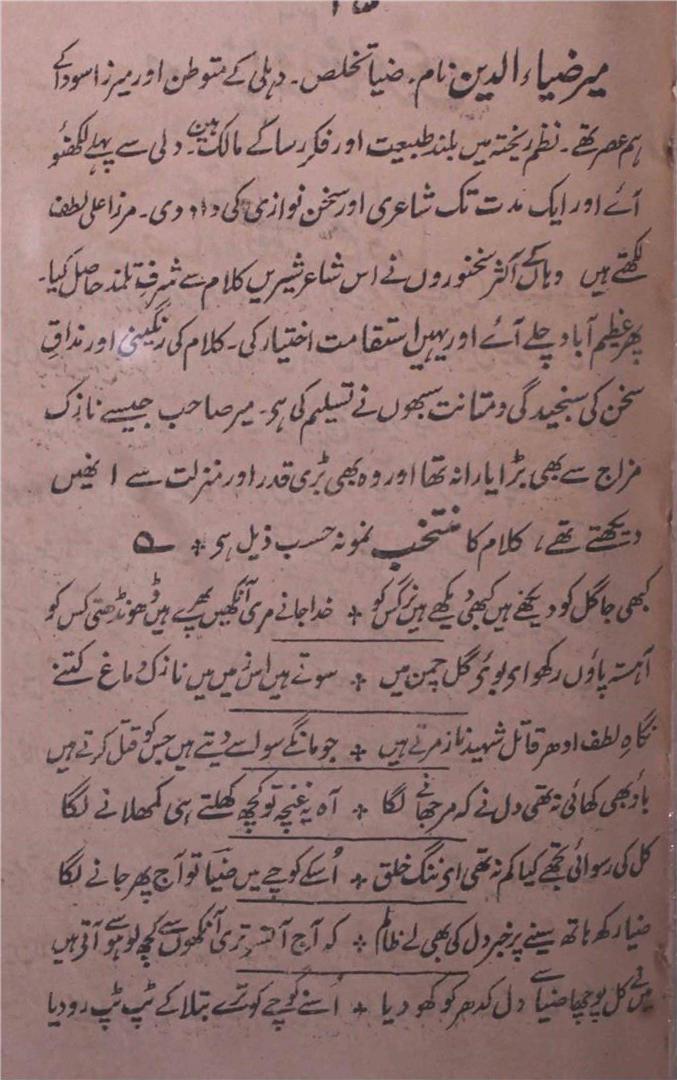 میر ضیاء الدین نام۔ ضیا تخلص۔ دہلی کے متوطن اور میرزا سودا کے
ہم عصر تھے۔ نظم ریختہ میں بلند طبیعت اور فکر رسا کے مالک ہیں۔ دلی سے پہلے لکھنؤ
آئے اور ایک مدت تک شاعری اور سخن نوازی کی داد دی۔ مرزا علی لطف
لکھتے ہیں وہاں کے اکثر سخنوروں نے اس شاعر شیریں کلام سے شرف تلمذ حاصل کیا۔
پھر عظیم آباد چلے آئے اور یہیں استقامت اختیار کی۔ کلام کی رنگینی اور مذاق
سخن کی سنجیدگی و متانت سبھوں نے تسلیم کی ہو۔ میر صاحب جیسے نازک
مزاج سے بھی بڑا یارانہ تھا اور وہ بھی بڑی قدر اور منزلت سے انھیں
دیکھتے تھے، کلام کا منتخب نمونہ حسب ذیل ہی ؎
کبھی جا گل کو دیکھے ہیں کبھی دیکھے ہیں نرگس کو + خدا جانے مری آنکھیں پھرے ہیں ڈھونڈھتی کس کو
آہستہ پاؤں رکھو ای بوئ گل چمن میں + سوتے ہیں اس میں نازک دماغ کتنے
نگاہ لطف اودھر قاتل شہید ناز مرتے ہیں + جو مانگے سو اسے دیتے ہیں جس کو قتل کرتے ہیں
باؤ بھی کھائی نہ تھی دل نے کہ مرجھانے لگا + آہ یہ غنچہ تو کچھ کھلتے ہی کمھلانے لگا
کل کی رسوائی تجھے کیا کم نہ تھی ای ننگ خلق + اُسکے کوچے میں ضیا تو آج پھر جانے لگا
ضیا رکھ ہاتھ سینے پر خبر دل کی بھی لے ظالم + کہ آج آنسو تری آنکھوں سے کچھ لوہو سے آتی ہیں
میں نے کل پوچھا ضیا سے دل کدھر کو کھو دیا + اُسنے کوچے کو ترے بتلا کے ٹپ ٹپ رو دیا